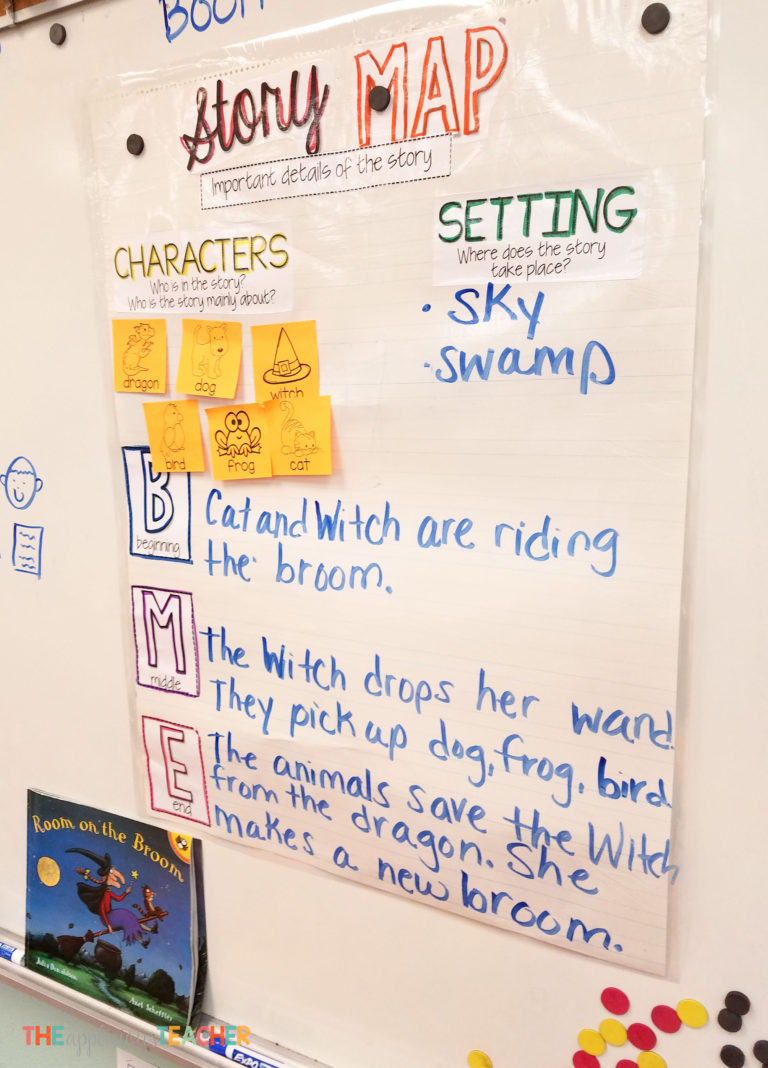 Story MAP
Important details of the story
CHARACTERS
Who is in the story?
Who is the story mainly about?
SETTING
Where does the story
take place?
• Sky
• swamp
dragon
dog
witch
bird
frog
cat
B
beginning
Cat and Witch are riding
the broom.
M
middle
The Witch drops her wand.
They pick up dog, frog, bird.
E
end
The animals save the Witch
from the dragon. She
makes a new broom.
Room on the Broom
Julia Donaldson
Axel Scheffler
THE applicious TEACHER
EXPO